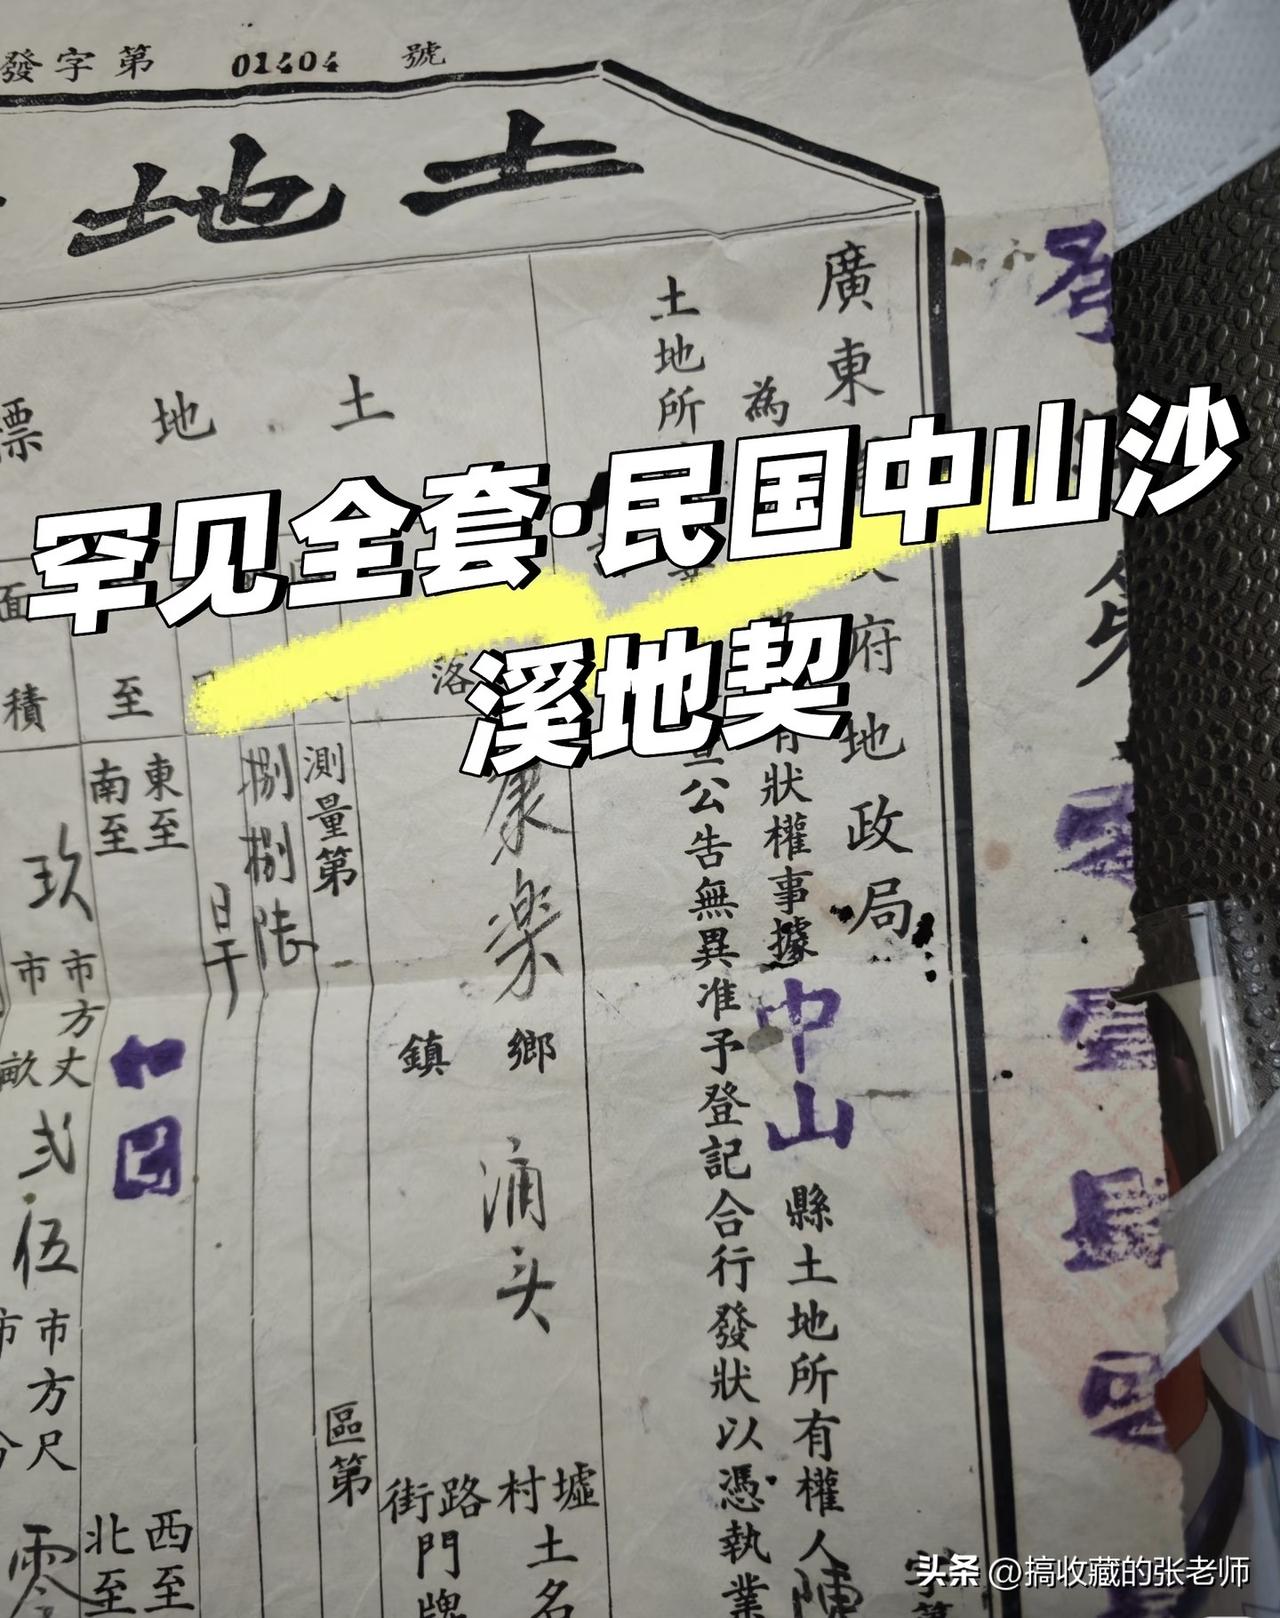 發字第 01404 號
土地
廣東
府地政局
為
有狀權事據中山縣土地所有權人陳
土地所
公告無異准予登記合行發狀以憑執業
土地標
落
康樂鄉鎮
涌头
墟村路街
土名
門牌
測量第
區第
捌捌陸
旱
至
東至
南至
西至
北至
和圖
面積
玖市方丈
市畝
弍
伍市方尺
零
字第
罕见全套·民国中山沙
溪地契
头条 @搞收藏的张老师